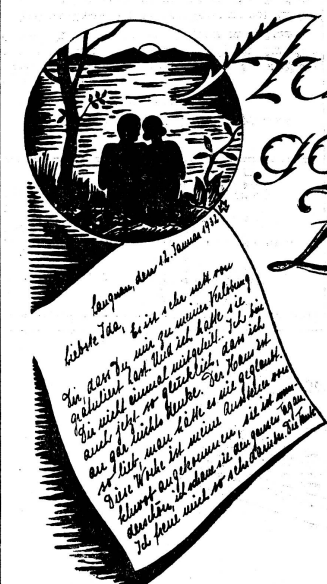 Au
ge
Langnau, den 12. Januar 1932
Liebste Ida, Es ist sehr nett von
Dir, dass Du mir zu meiner Verlobung
gratuliert hast. Und ich hatte sie
Dir nicht einmal mitgeteilt. Ich bin
auch jetzt so glücklich, dass ich
an gar nichts denke. Der Hans ist
so lieb, man hätte es nie geglaubt.
Diese Woche ist meine Aussteuer von
angekommen, sie ist wun-
derschön, ich schaue sie den ganzen Tag an.
Ich freue mich so sehr darüber. Die Tante